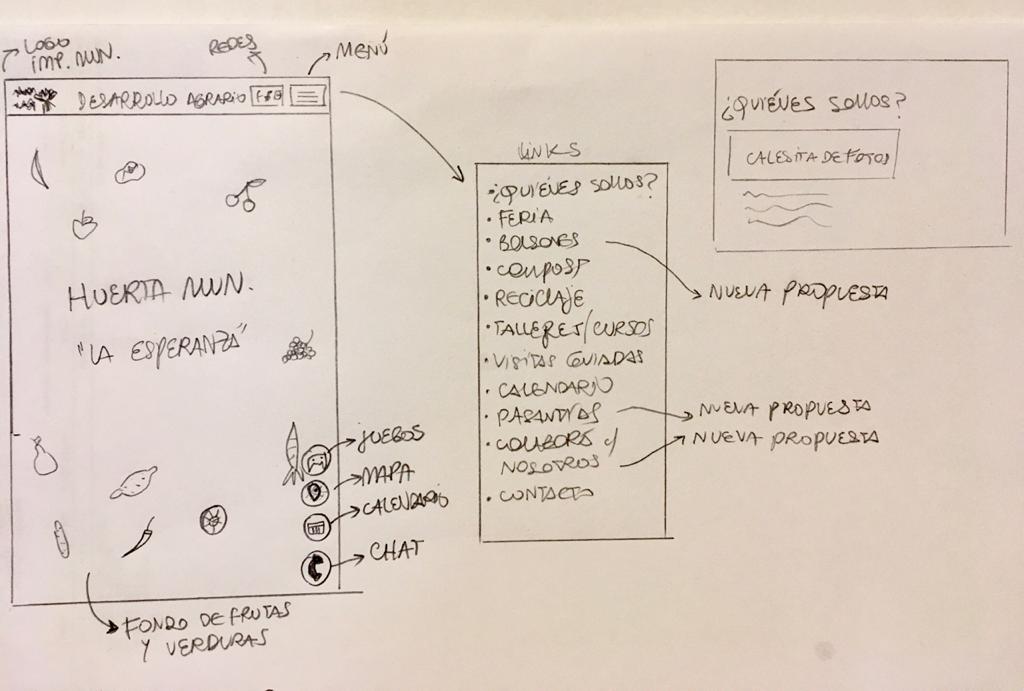 LOGO
IMP. MUN.
REDES
MENÚ
DESARROLLO AGRARIO
HUERTA MUN.
"LA ESPERANZA"
JUEGOS
MAPA
CALENDARIO
CHAT
FONDO DE FRUTAS
Y VERDURAS
LINKS
• ¿QUIÉNES SOMOS?
• FERIA
• BOLSONES
• COMPOST
• RECICLAJE
• TALLERES/CURSOS
• VISITAS GUIADAS
• CALENDARIO
• PASANTÍAS
• COLABORÁ c/
NOSOTROS
• CONTACTO
NUEVA PROPUESTA
NUEVA PROPUESTA
NUEVA PROPUESTA
¿QUIÉNES SOMOS?
CALESITA DE FOTOS